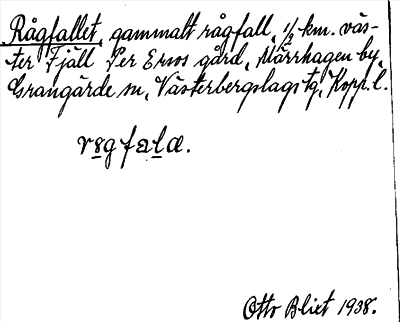 Rågfallet, gammalt rågfall, 1/2 km. väs-
ter Fjäll Per Ersos gård, Mårrhagen by,
Grangärde sn, Västerbergslags tg, Kopp. l.
Otto Blixt 1938.